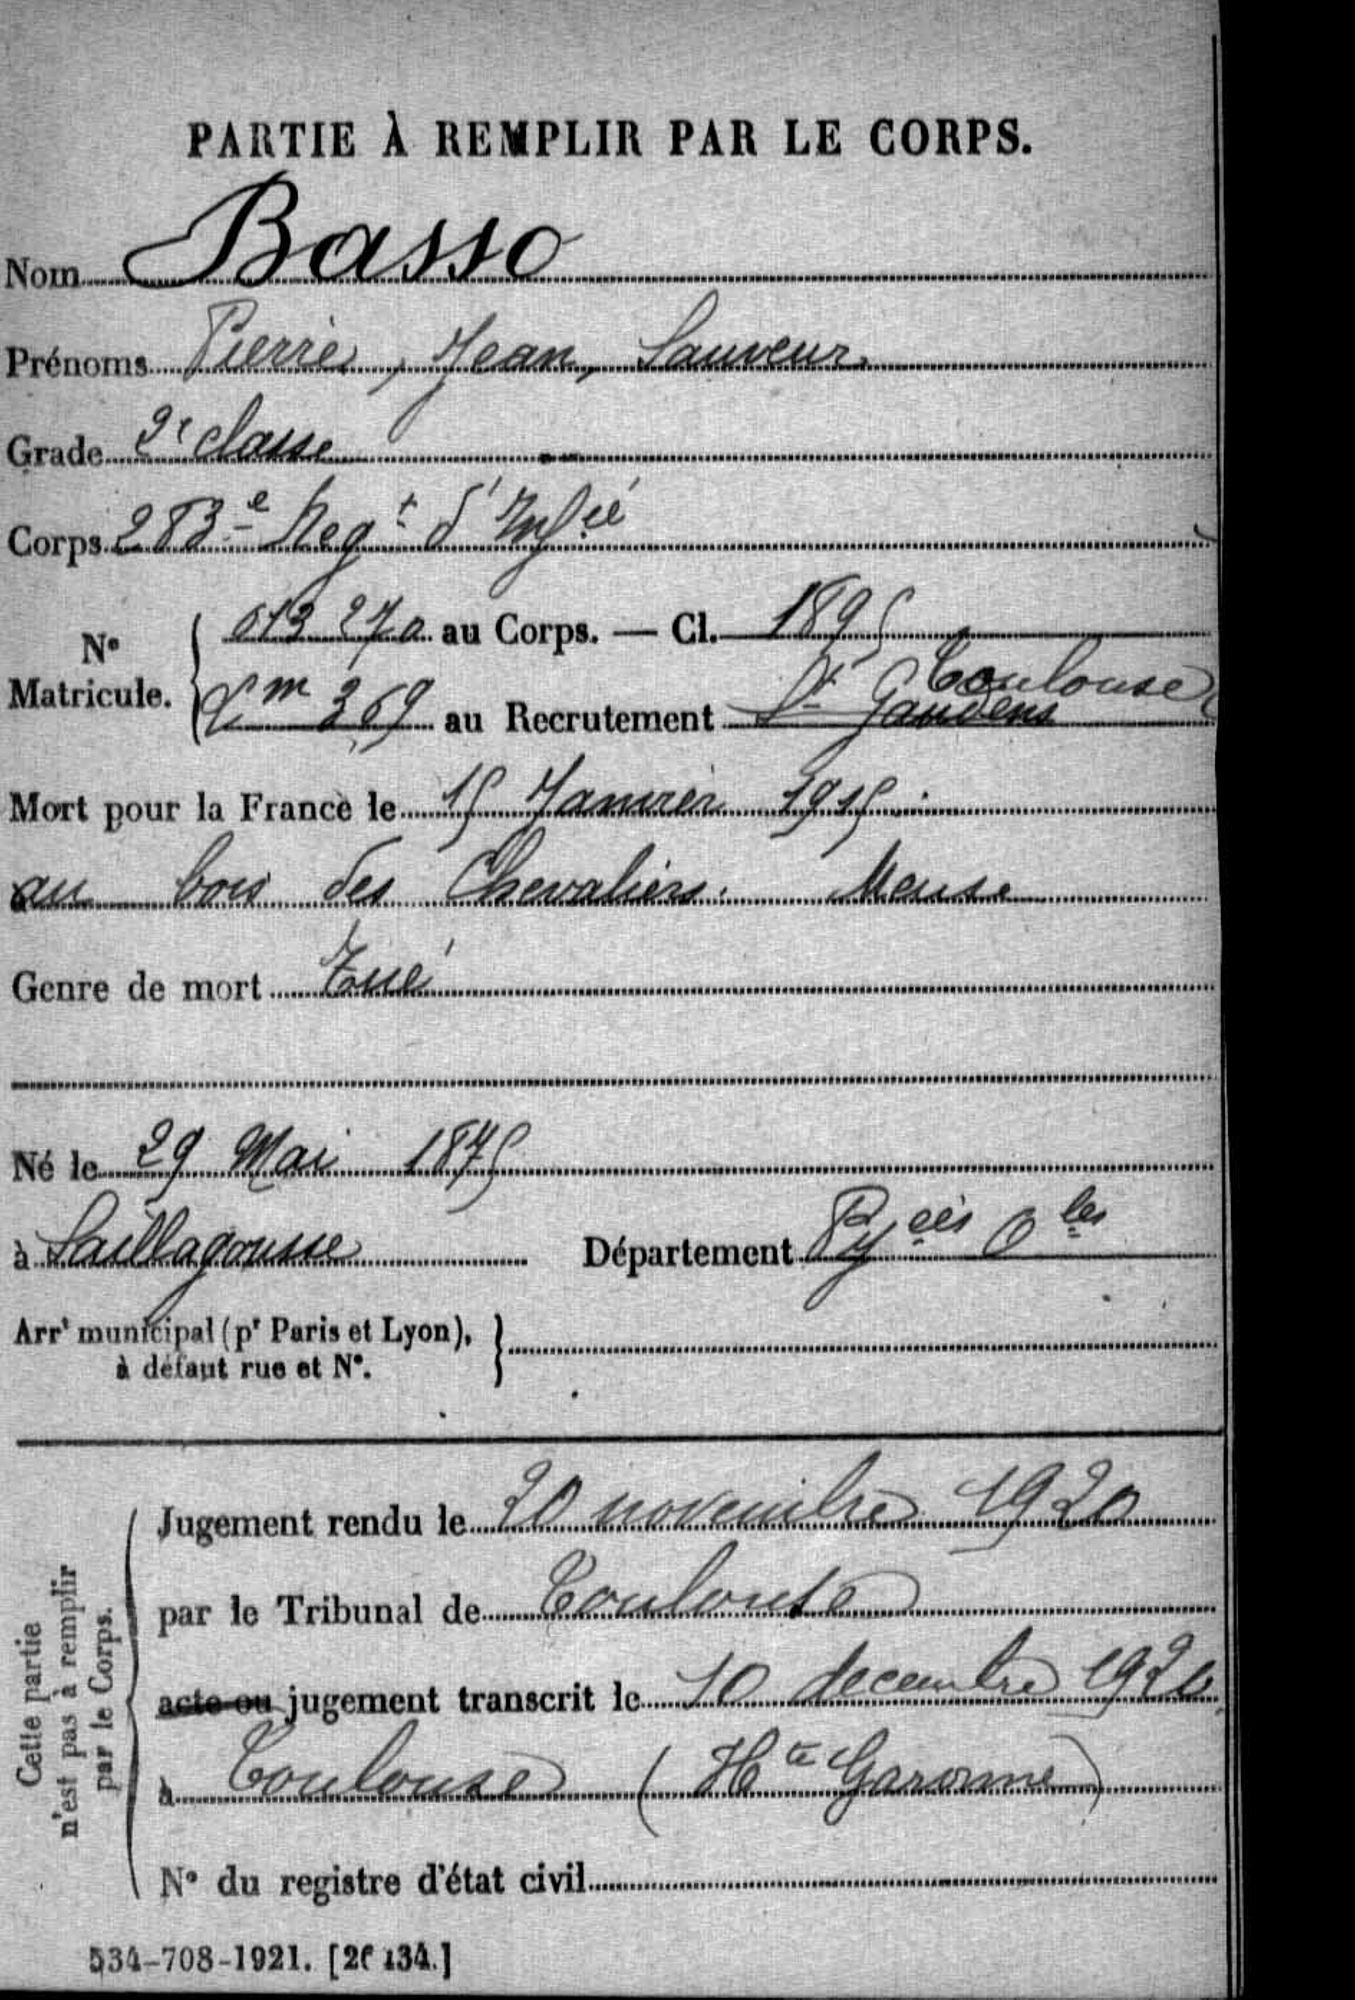 PARTIE À REMPLIR PAR LE CORPS.
Nom Basso
Prénoms Pierre, Jean, Sauveur
Grade 2e classe
Corps 283e Regt d'Infie
No Matricule. { 013 270 au Corps. — Cl. 1895
Toulouse
Cm 369 au Recrutement St Gaudens
Mort pour la France le 15 Janvier 1915.
au bois des Chevaliers. Meuse
Genre de mort Tué
Né le 29 Mai 1875
à Saillagousse Département Pyées Oles
Arrt municipal (pr Paris et Lyon), }
à défaut rue et No.
Cette partie
n'est pas à remplir
par le Corps.
Jugement rendu le 20 novembre 1920
par le Tribunal de Toulouse
acte ou jugement transcrit le 10 decembre 1920
à Toulouse (Hte Garonne)
No du registre d'état civil
534-708-1921. [26134.]